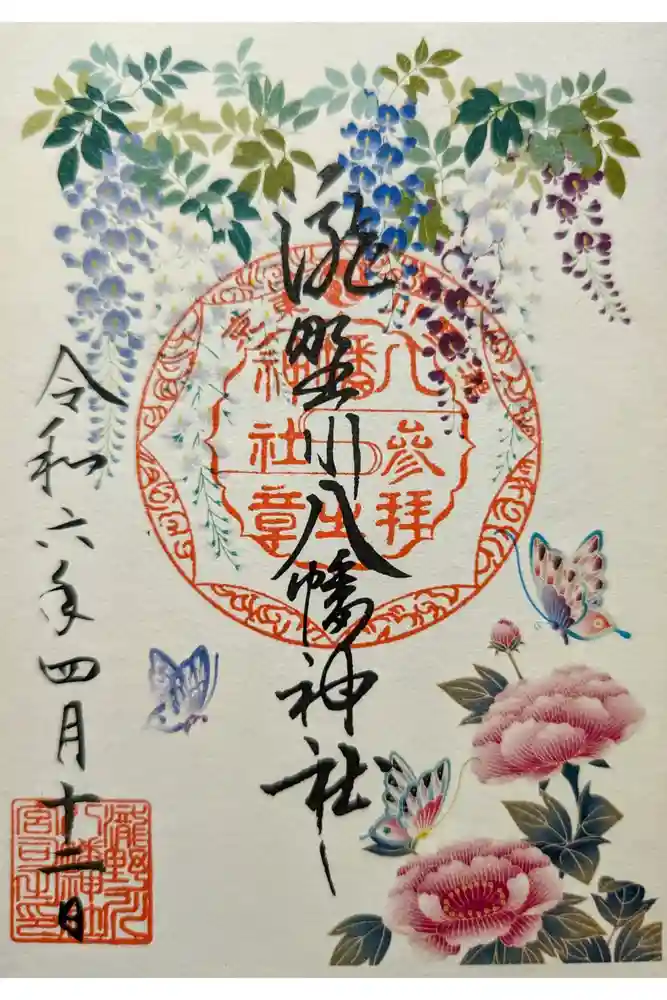 瀧野川八幡神社
八幡神社
参拝
社章
令和六年四月十二日
瀧野川
八幡神社
宮司之印